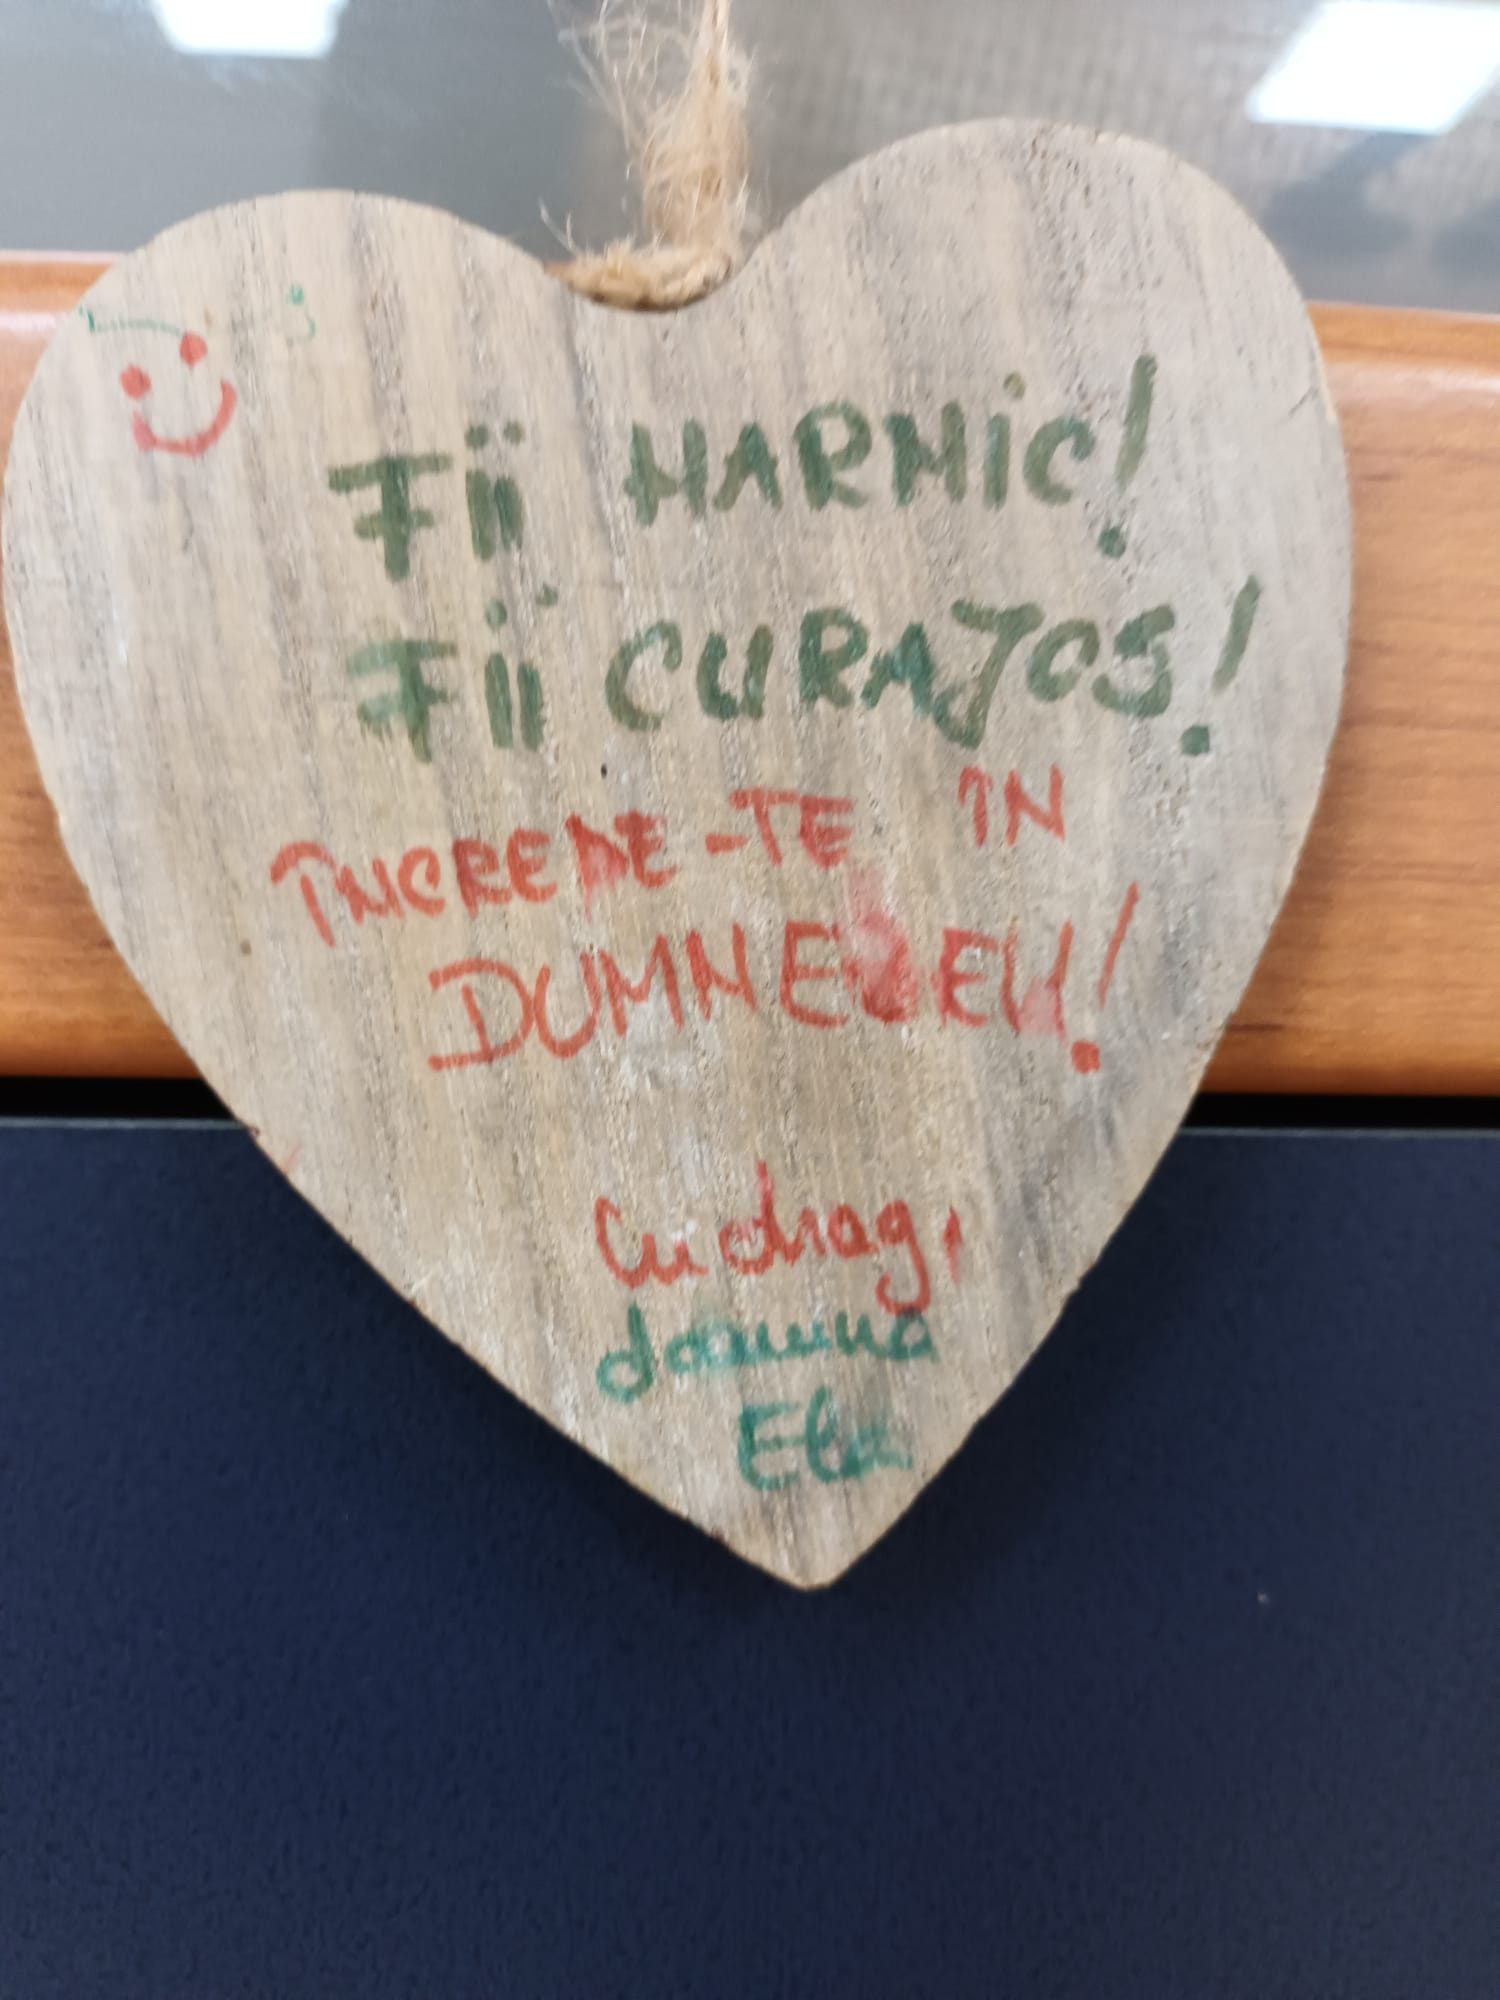 Fii HARNiC!
Fii CURAJOS!
ÎNCREDE-TE ÎN
DUMNEZEU!
Cu drag,
doamna
Ela